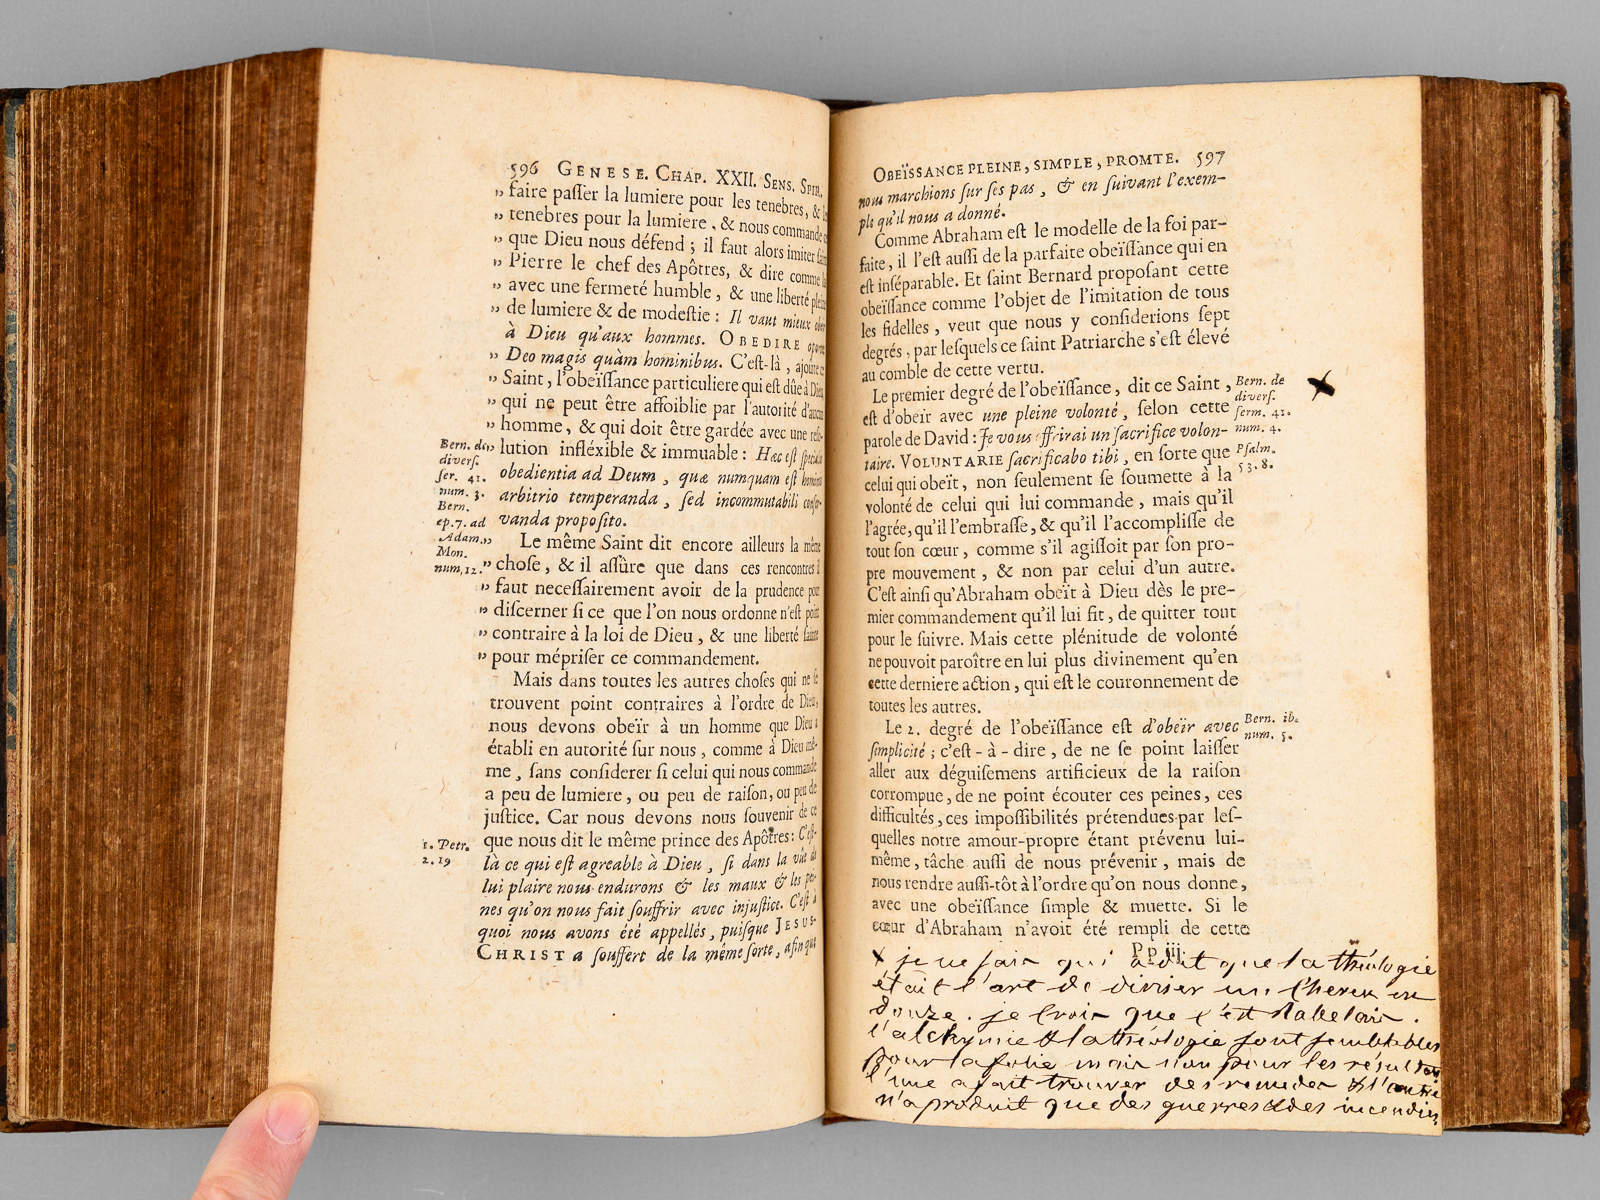 596 GENESE. CHAP. XXII. SENS. SPIR.
„ faire paſſer la lumiere pour les tenebres, &
„ tenebres pour la lumiere, & nous commande
„ que Dieu nous défend; il faut alors imiter ſaint
„ Pierre le chef des Apôtres, & dire comme lui
„ avec une fermeté humble, & une liberté pleine
„ de lumiere & de modeſtie: Il vaut mieux obéir
à Dieu qu'aux hommes. OBEDIRE oportet
„ Deo magis quàm hominibus. C'eſt-là, ajoûte ce
„ Saint, l'obeïſſance particuliere qui eſt dûe à Dieu
„ qui ne peut être affoiblie par l'autorité d'aucun
„ homme, & qui doit être gardée avec une reſo-
„ lution infléxible & immuable: Hæc eſt ſpecialis
obedientia ad Deum, quæ numquam eſt hominis
arbitrio temperanda, ſed incommutabili conſer-
vanda propoſito.
Bern. de
diverſ.
ſer. 41.
num. 3.
Bern.
ep. 7. ad
Adam.
Mon.
num, 12.
„ Le même Saint dit encore ailleurs la même
„ choſe, & il aſſûre que dans ces rencontres il
„ faut neceſſairement avoir de la prudence pour
„ diſcerner ſi ce que l'on nous ordonne n'eſt point
„ contraire à la loi de Dieu, & une liberté ſainte
„ pour mépriſer ce commandement.
Mais dans toutes les autres choſes qui ne ſe
trouvent point contraires à l'ordre de Dieu,
nous devons obeïr à un homme que Dieu a
établi en autorité ſur nous, comme à Dieu mê-
me, ſans conſiderer ſi celui qui nous commande
a peu de lumiere, ou peu de raiſon, ou peu de
juſtice. Car nous devons nous ſouvenir de ce
que nous dit le même prince des Apôtres: C'eſt-
là ce qui eſt agreable à Dieu, ſi dans la vûe de
lui plaire nous endurons & les maux & les pei-
nes qu'on nous fait ſouffrir avec injuſtice. C'eſt à
quoi nous avons été appellés, puiſque JESUS-
CHRIST a ſouffert de la même ſorte, afin que
1. Petr.
2. 19
OBEÏSSANCE PLEINE, SIMPLE, PROMTE. 597
nous marchions ſur ſes pas, & en ſuivant l'exem-
ple qu'il nous a donné.
Comme Abraham eſt le modelle de la foi par-
faite, il l'eſt auſſi de la parfaite obeïſſance qui en
eſt inſéparable. Et ſaint Bernard propoſant cette
obeïſſance comme l'objet de l'imitation de tous
les fidelles, veut que nous y conſiderions ſept
degrés, par leſquels ce ſaint Patriarche s'eſt élevé
au comble de cette vertu.
Le premier degré de l'obeïſſance, dit ce Saint,
eſt d'obeir avec une pleine volonté, ſelon cette
parole de David: Je vous offrirai un ſacrifice volon-
taire. VOLUNTARIE ſacrificabo tibi, en ſorte que
celui qui obeït, non ſeulement ſe ſoumette à la
volonté de celui qui lui commande, mais qu'il
l'agrée, qu'il l'embraſſe, & qu'il l'accompliſſe de
tout ſon cœur, comme s'il agiſſoit par ſon pro-
pre mouvement, & non par celui d'un autre.
C'eſt ainſi qu'Abraham obeït à Dieu dès le pre-
mier commandement qu'il lui fit, de quitter tout
pour le ſuivre. Mais cette plénitude de volonté
ne pouvoit paroître en lui plus divinement qu'en
cette derniere action, qui eſt le couronnement de
toutes les autres.
Bern. de
diverſ.
ſerm. 41.
num. 4.
Pſalm.
53. 8.
Le 2. degré de l'obeïſſance eſt d'obeïr avec
ſimplicité; c'eſt-à-dire, de ne ſe point laiſſer
aller aux déguiſemens artificieux de la raiſon
corrompue, de ne point écouter ces peines, ces
difficultés, ces impoſſibilités prétendues par leſ-
quelles notre amour-propre étant prévenu lui-
même, tâche auſſi de nous prévenir, mais de
nous rendre auſſi-tôt à l'ordre qu'on nous donne,
avec une obeïſſance ſimple & muette. Si le
cœur d'Abraham n'avoit été rempli de cette
Bern. ib.
num. 5.
Pp iij
x je ne sais qui a dit que la théologie
était l'art de diviser un cheveu en
douze. je crois que c'est Rabelais.
l'alchymie & la théologie sont semblables
pour la folie mais non pour les résultats
l'une a fait trouver des remedes & l'autre
n'a produit que des guerres & des incendies